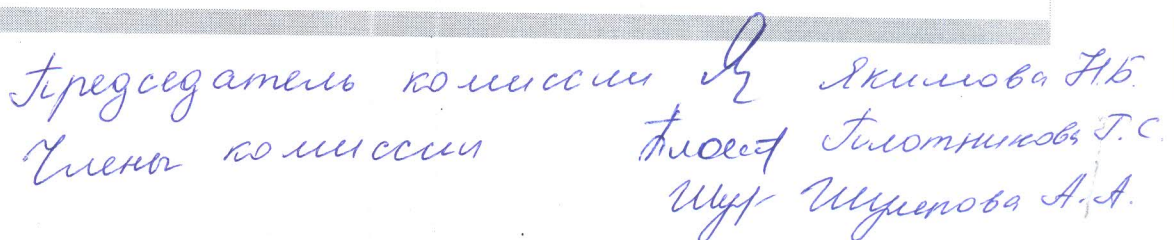 Председатель комиссии Якимова Н.Б.
Члены комиссии Плотникова Т.С.
А.А.